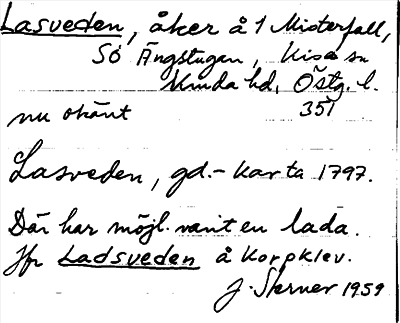 Lasveden, åker å 1 Misterfall,
SÖ Ängstugan, Kisa sn
Kinda hd, Östg. l.
nu okänt 351
Lasveden, gd.- karta 1797.
Där har möjl. varit en lada.
Jfr Ladsveden å Korpklev.
J. Sterner 1959